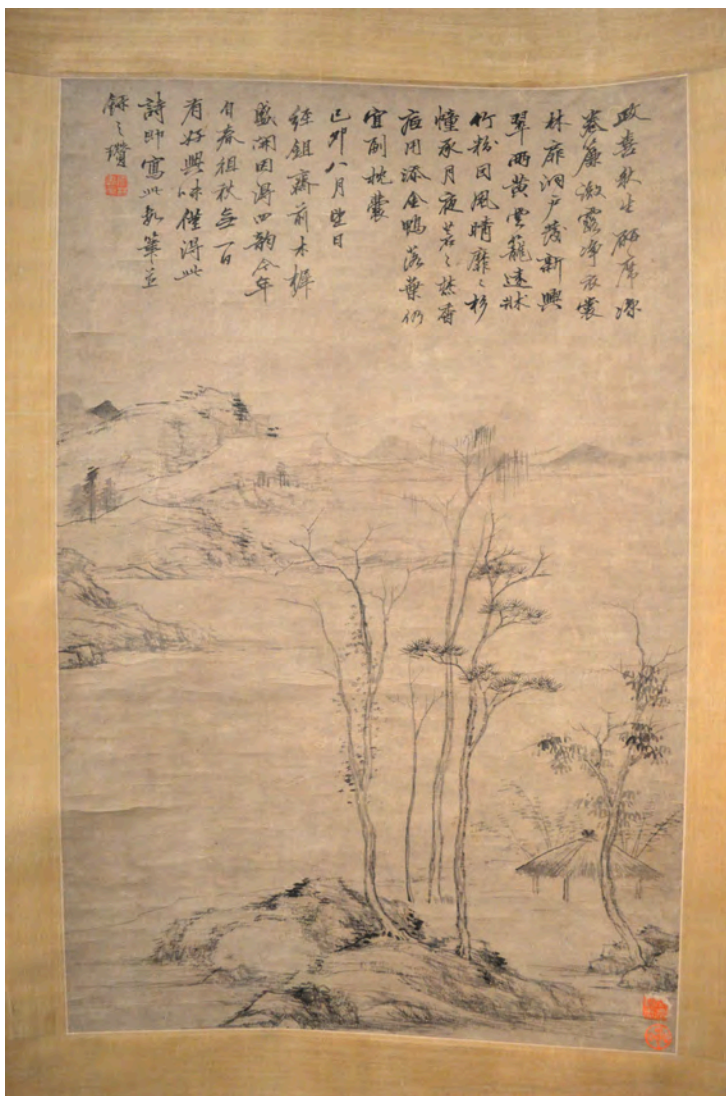 政喜秋生研席涼
卷簾微露淨衣裳
林扉洞戶發新興
翠雨黃雲籠遠牀
竹粉因風晴靡〻杉
幢承月夜蒼〻焚香
底用添金鴨落葉仍
宜副枕囊
己卯八月望日
經鉏齋前木樨
盛開因得四韻今年
自春徂秋無一日
有好興味僅得此
詩即寫此筆並
錄之瓚